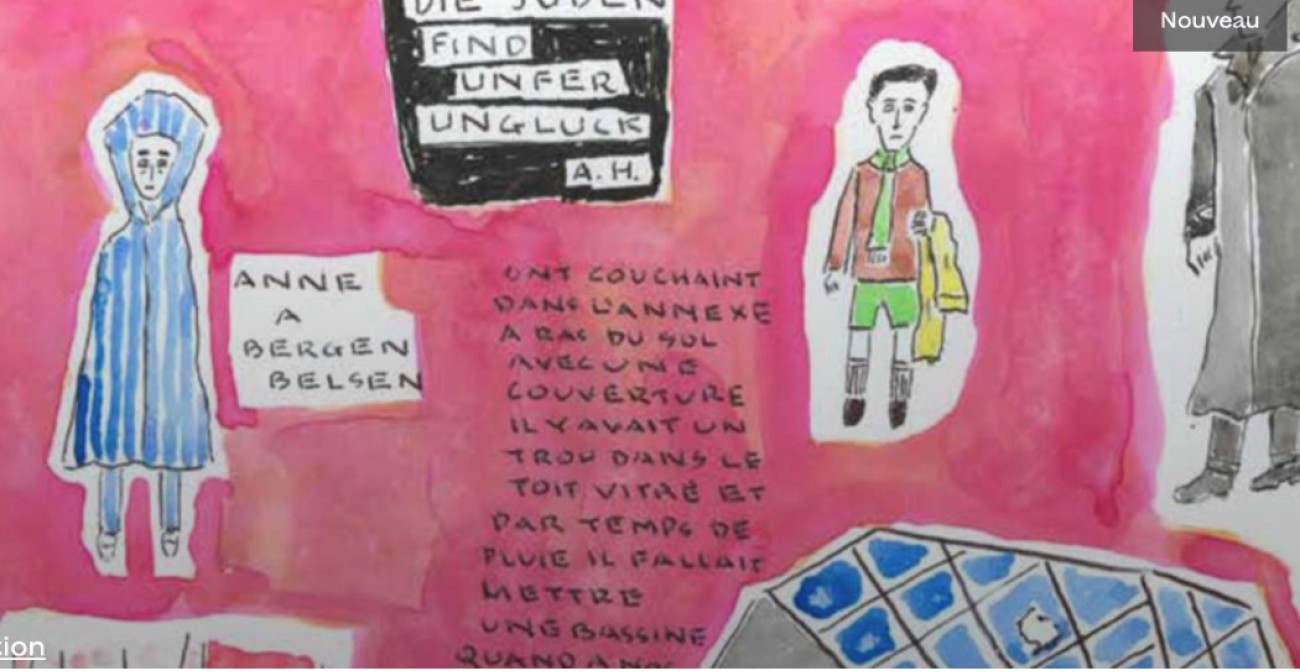 DIE JUDEN
FIND
UNFER
UNGLUCK
A.H.
Nouveau
ANNE
A
BERGEN
BELSEN
ONT COUCHAINT
DANS L'ANNEXE
A RAS DU SOL
AVEC UNE
COUVERTURE
IL Y AVAIT UN
TROU DANS LE
TOIT VITRÉ ET
PAR TEMPS DE
PLUIE IL FALLAIT
METTRE
UNE BASSINE
QUAND
tion